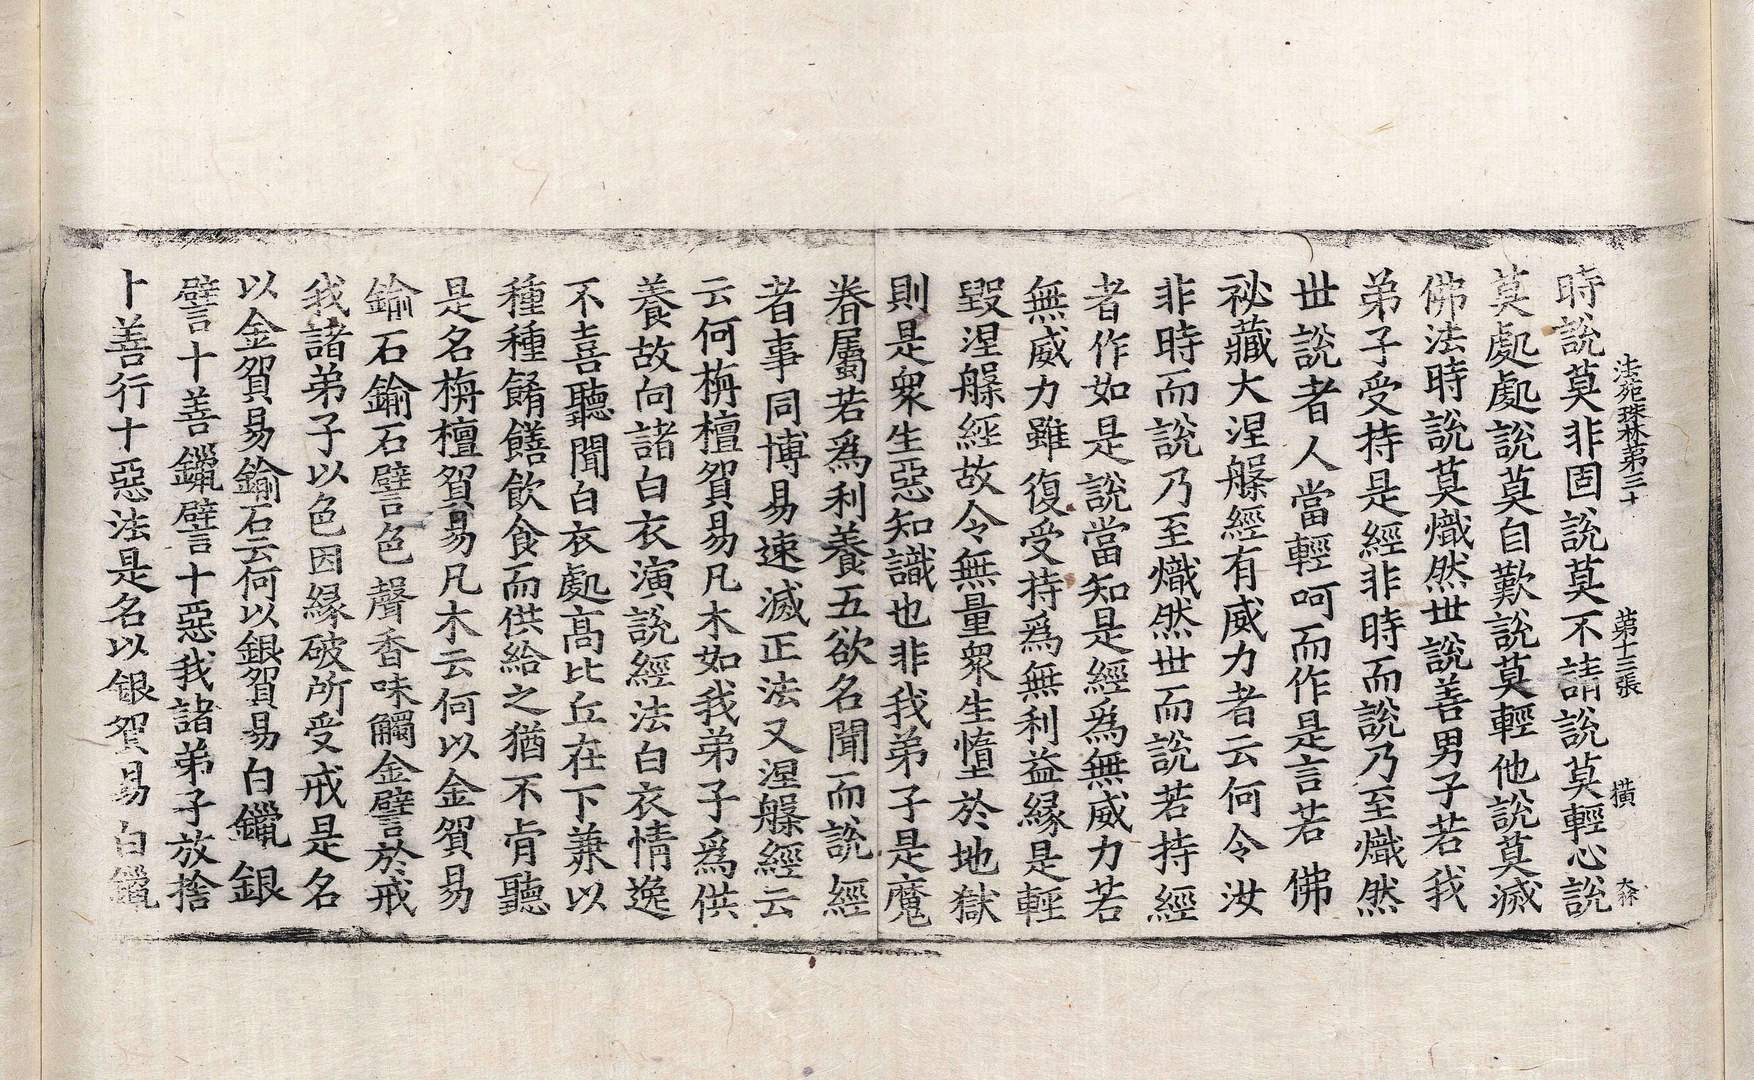 法苑珠林第三十 第十三張 橫
時說莫非固說莫不請說莫輕心說
莫處處說莫自歎說莫輕他說莫滅
佛法時說莫熾然世說善男子若我
弟子受持是經非時而說乃至熾然
世說者人當輕呵而作是言若佛
祕藏大涅槃經有威力者云何令汝
非時而說乃至熾然世而說若持經
者作如是說當知是經為無威力若
無威力雖復受持為無利益緣是輕
毀涅槃經故令無量眾生墮於地獄
則是眾生惡知識也非我弟子是魔
眷屬若為利養五欲名聞而說經
者事同博易速滅正法又涅槃經云
云何栴檀貿易凡木如我弟子為供
養故向諸白衣演說經法白衣情逸
不喜聽聞白衣處高比丘在下兼以
種種餚饍飲食而供給之猶不肯聽
是名栴檀貿易凡木云何以金貿易
鍮石鍮石譬色聲香味觸金譬於戒
我諸弟子以色因緣破所受戒是名
以金貿易鍮石云何以銀貿易白鑞銀
譬十善鑞譬十惡我諸弟子放捨
十善行十惡法是名以銀貿易白鑞